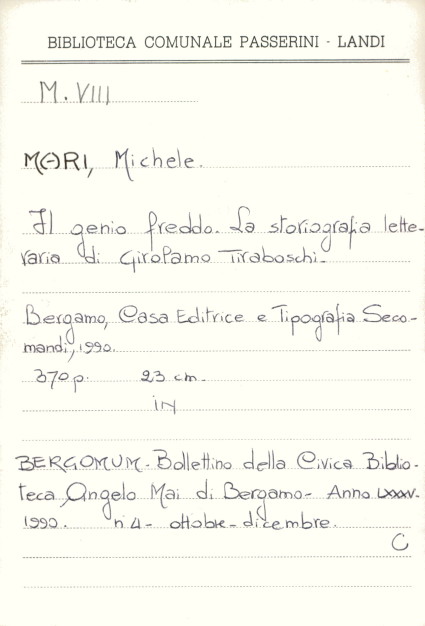 BIBLIOTECA COMUNALE PASSERINI - LANDI
M. VIII
MARI, Michele.
Il genio freddo. La storiografia lette-
raria di Girolamo Tiraboschi.
Bergamo, Casa Editrice e Tipografia Seco-
mandi, 1990.
370 p. 23 cm.
IN
BERGOMUM - Bollettino della Civica Biblio-
teca Angelo Mai di Bergamo - Anno LXXXV.
1990. n° 4 - ottobre - dicembre.
C